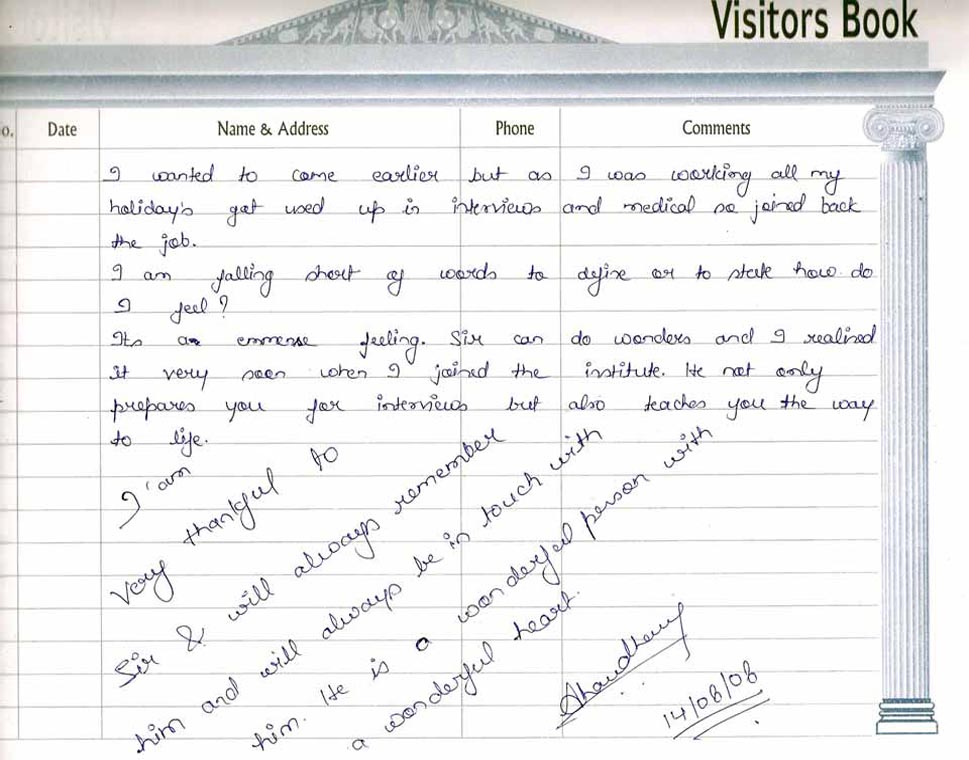 Visitors Book
o. Date Name & Address Phone Comments
I wanted to come earlier but as I was working all my
holiday's got used up in interviews and medical so joined back
the job.
I am falling short of words to define or to state how do
I feel?
Its an emmense feeling. Sir can do wonders and I realised
it very soon when I joined the institute. He not only
prepares you for interviews but also teaches you the way
to life.
I'am
very thankful to
Sir & will always remember
him and will always be in touch with
him. He is a wonderful person with
a wonderful heart.
14/08/08